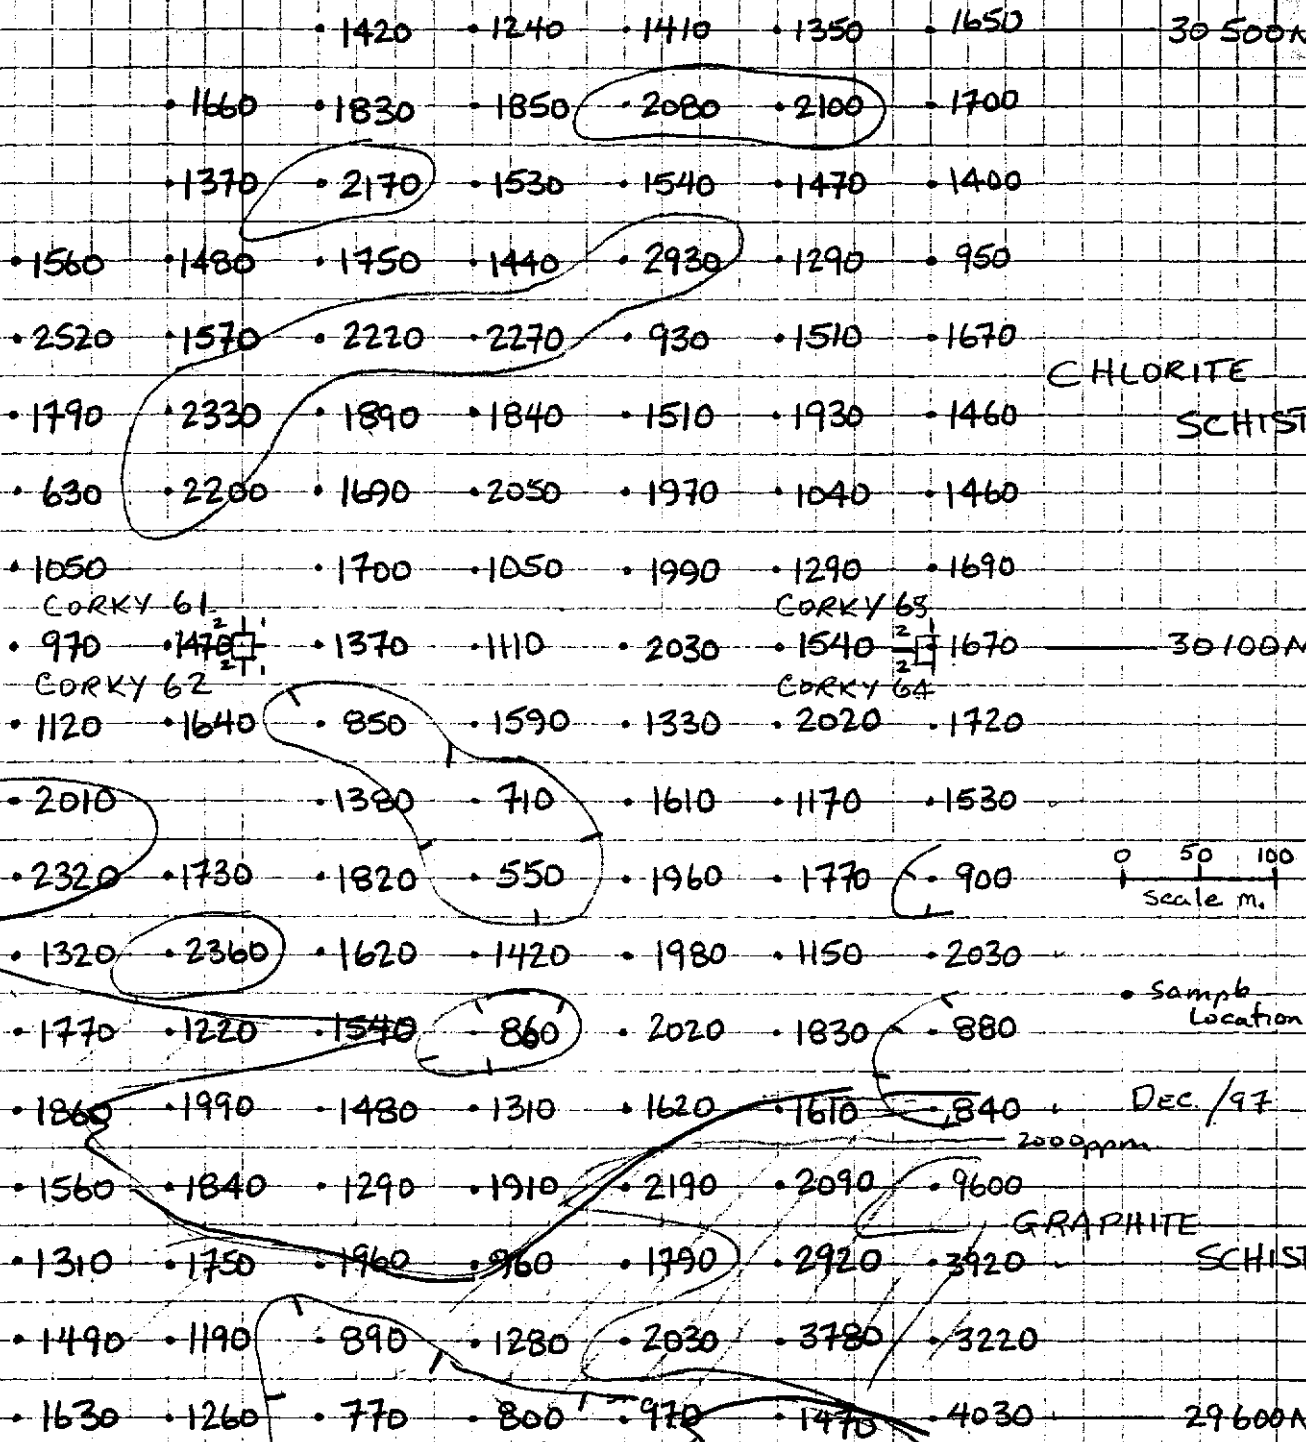 1420 1240 1410 1350 1650 30 500N
1660 1830 1850 2080 2100 1700
1370 2170 1530 1540 1470 1400
1560 1480 1750 1440 2930 1290 950
2520 1570 2220 2270 930 1510 1670
CHLORITE
1790 2330 1890 1840 1510 1930 1460
SCHIST
630 2200 1690 2050 1970 1040 1460
1050 1700 1050 1990 1290 1690
CORKY 61 CORKY 63
2 1 2 1
970 1470 1370 1110 2030 1540 1670 30100N
2 1 2
CORKY 62 CORKY 64
1120 1640 850 1590 1330 2020 1720
2010 1380 710 1610 1170 1530
0 50 100
2320 1730 1820 550 1960 1770 900
scale m.
1320 2360 1620 1420 1980 1150 2030
Sample
Location
1770 1220 1540 860 2020 1830 880
1860 1990 1480 1310 1620 1610 840 DEC./97
2000ppm
1560 1840 1290 1910 2190 2090 9600
GRAPHITE
1310 1750 1960 960 1790 2920 3920 SCHIST
1490 1190 890 1280 2030 3780 3220
1630 1260 770 800 970 1470 4030 29600N